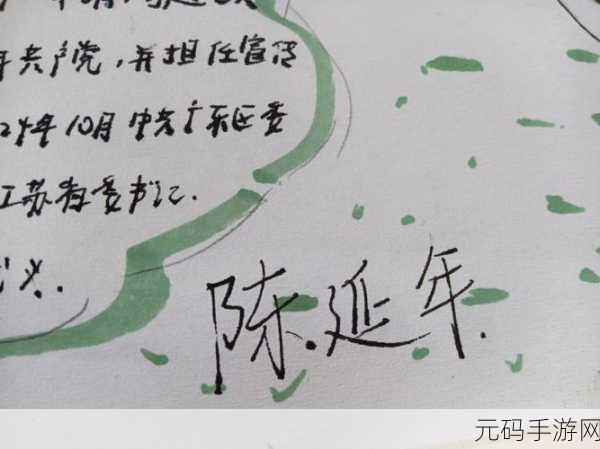 年共产党，并担任宣传
24年10月中共广东区委
江苏省委书记.
义.
陈延年
元码手游网